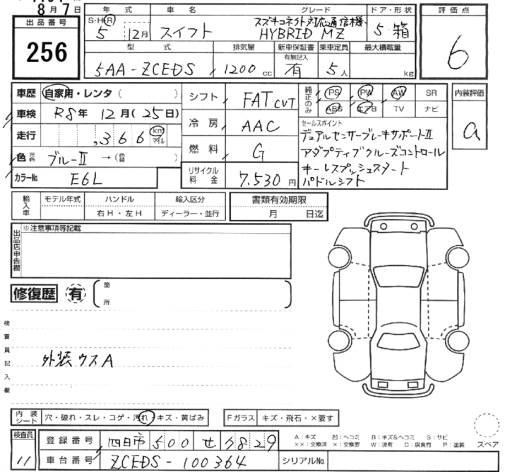 8月7日
出品番号
256
年式
S・H・R 5年12月
スイフト
グレード
スズキコネクト対応通信機
HYBRID MZ
ドア・形状
5 箱
評価点
6
型式
5AA-ZCEDS
排気量
1200cc
新車保証書
有無記入
有
乗車定員
5人
最大積載量
kg
車歴 自家用・レンタ ( )
車検 R8年12月(25日)
走行 366 km マイル
色 ブルーⅡ → ( )
カラーNo. E6L
シフト FAT CVT
冷房 AAC
燃料 G
リサイクル料金 7.530円
純正のみ
PS PW AW SR
ABS エアB TV ナビ
内装評価
a
セールスポイント
デュアルセンサーブレーキサポートⅡ
アダプティブクルーズコントロール
キーレスプッシュスタート
パドルシフト
輸入車
モデル年式
ハンドル
右H・左H
輸入区分
ディーラー・並行
書類有効期限
月 日迄
出品店申告欄
※注意事項等記載
修復歴 有
箇所
検査員記入欄
外装ウスA
内装シート 穴・破れ・スレ・コゲ・汚れ・キズ・黄ばみ
Fガラス キズ・飛石・×要す
検査員
11
登録番号 四日市 500 せ 7829
車台番号 ZCEDS-100364
シリアルNo.
スペア